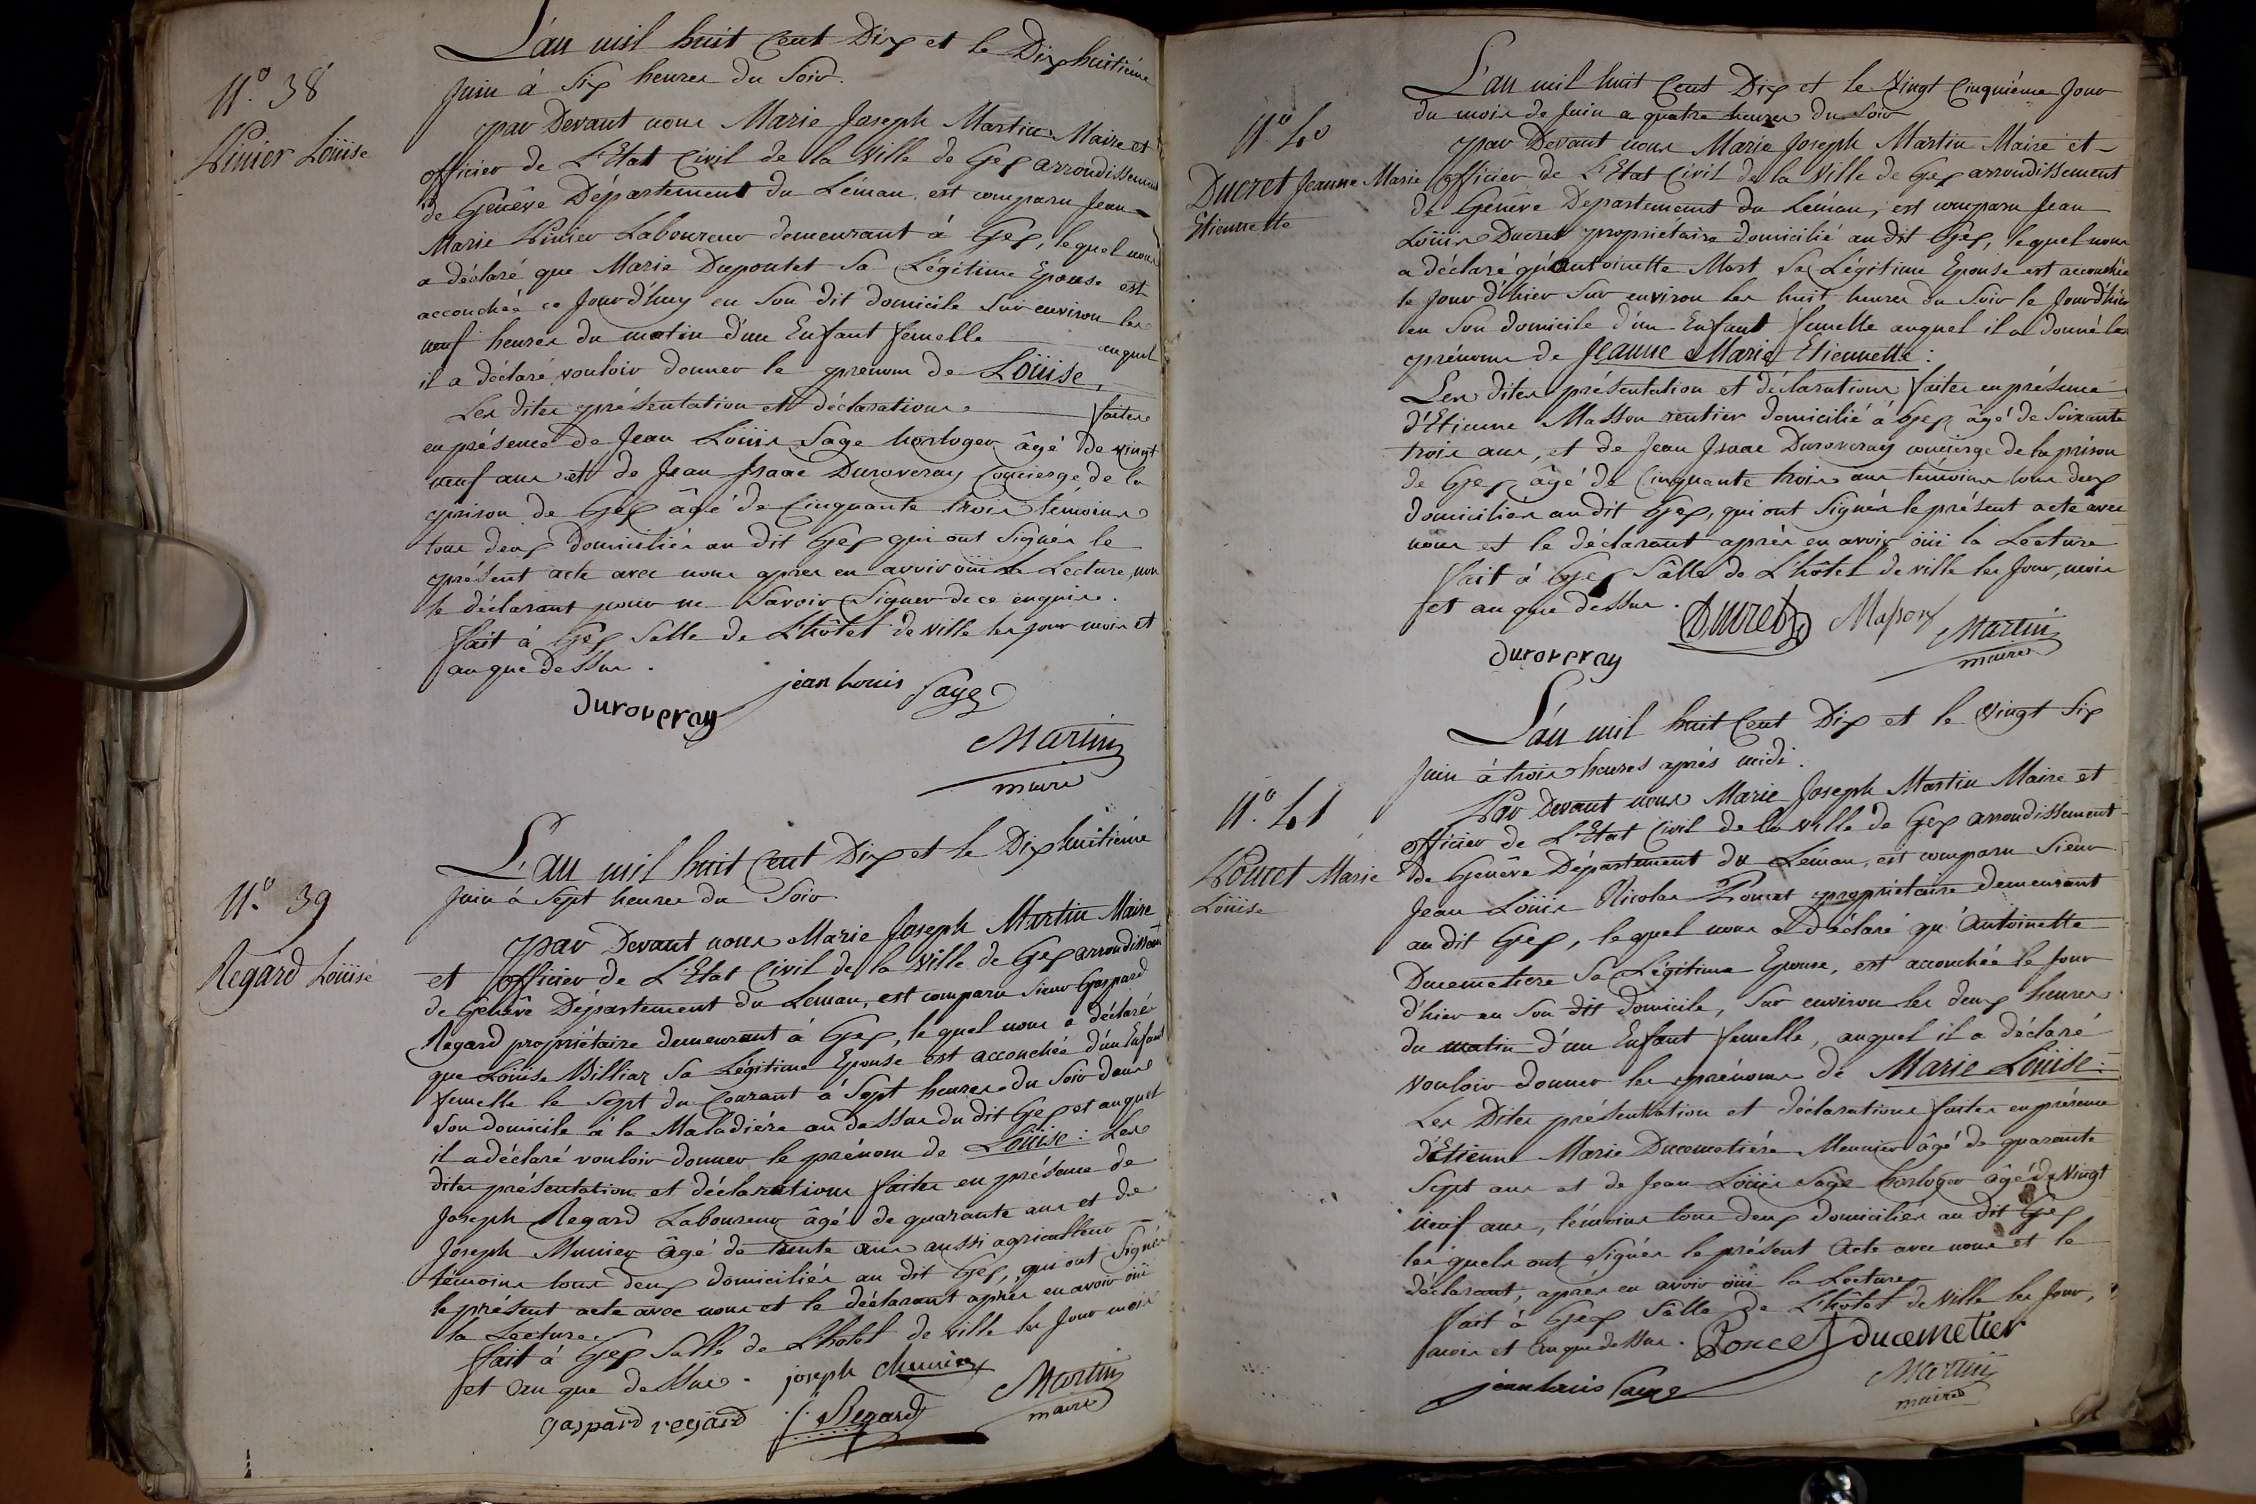 N.o 38
Pinier Loüise
L'an mil huit Cent Dix et le Dixhuitiéme
Juin à Six heures du Soir.
par Devant nous Marie Joseph Martin Maire et
officier de L'Etat Civil de la Ville de Gex arrondissement
de Genêve Département du Léman, est comparu Jean
Marie Pinier Laboureur demeurant à Gex, lequel nous
a déclaré que Marie Dupontet Sa Légitime Epouse est
accouchée ce Jourd'huy en Son dit domicile Sur environ les
neuf heures du matin d'un Enfant femelle auquel
il a déclaré vouloir donner le prenom de Loüise,
Les dites présentation et déclarations faites
en présence de Jean Loüis Sage horloger âgé de vingt
neuf ans et de Jean Isaac Duroveray Concierge de la
prison de Gex âgé de Cinquante trois témoins
tous deux Domiciliés au dit Gex qui ont Signés le
présent acte avec nous apres en avoir oüi la Lecture, non
le déclarant pour ne Savoir Signer de ce enquis.
fait à Gex Salle de L'hôtel de ville les jour mois et
an que dessus.
Duroveray
jean Louis Sage
Martin
maire
N.o 39
Regard Loüise
L'an mil huit Cent Dix et le Dixhuitiéme
Juin à Sept heures du Soir
par Devant nous Marie Joseph Martin Maire
et officier de L'Etat Civil de la Ville de Gex arrondissem.t
de Genêve Département du Leman, est comparu Sieur Gaspard
Regard propriétaire demeurant à Gex, lequel nous a déclaré
que Loüise Billiaz Sa Légitime Epouse est accouchée d'un Enfant
femelle le Sept du Courant à Sept heures du Soir dans
Son domicile à la Maladiére au dessus du dit Gex et auquel
il a déclaré vouloir donner le prénom de Loüise: Les
dites présentation et déclarations faites en présence de
Joseph Regard Laboureur âgé de quarante ans et de
Joseph Munier âgé de trente ans aussi agriculteur
temoins tous deux domiciliés au dit Gex, qui ont Signés
le présent acte avec nous et le déclarant apres en avoir oüi
la Lecture.
fait à Gex Salle de L'hotel de ville les Jour mois
et an que dessus.
joseph Munier
Martin
maire
gaspard regard
J Regard
N.o 40
Ducret Jeanne Marie
Etiennette
L'an mil huit Cent Dix et le Vingt Cinquiéme Jour
du mois de Juin a quatre heures du Soir
par Devant nous Marie Joseph Martin Maire et
officier de L'Etat Civil de la Ville de Gex arrondissement
de Genêve Departement du Leman, est comparu Jean
Loüis Ducret propriétaire domicilié au dit Gex, lequel nous
a déclaré qu'antoinette Mast Sa Légitime Epouse est accouchée
le Jour d'hier Sur environ les huit heures du Soir le Jour d'hier
en Son domicile d'un Enfant femelle auquel il a donné les
prénoms de Jeanne Marie Etiennette:
Les dites présentation et déclarations faites en présence
d'Etienne Masson rentier domicilié à Gex âgé de Soixante
trois ans, et de Jean Isaac Duroveray concierge de la prison
de Gex, âgé de Cinquante trois ans temoins tous deux
domiciliés au dit Gex, qui ont Signés le présent acte avec
nous et le déclarant après en avoir oüi la Lecture
fait à Gex Sâlle de L'hôtel de ville les Jour, mois
et an que dessus.
Ducret
Masson
Martin
maire
Duroveray
N.o 41
Poncet Marie
Loüise
L'an mil huit Cent Dix et le Vingt Six
Juin à trois heures après midi.
Par Devant nous Marie Joseph Martin Maire et
officier de L'Etat Civil de la Ville de Gex arrondissement
de Genêve Département du Léman, est comparu Sieur
Jean Loüis Nicolas Poncet propriétaire demeurant
au dit Gex, lequel nous a déclaré qu'Antoinette
Ducemetiere Sa Légitime Epouse, est accouchée le Jour
d'hier en Son dit domicile, Sur environ les deux heures
du matin d'un Enfant femelle, auquel il a déclaré
vouloir donner les prénoms de Marie Loüise:
Les Dites présentation et déclarations faites en présence
d'Etienne Marie Ducemetiére Meunier âgé de quarante
Sept ans et de Jean Loüis Sage horloger âgé de Vingt
Neuf ans, témoins tous deux domiciliés au dit Gex
les quels ont Signés le présent Acte avec nous et le
déclarant, après en avoir oüi la Lecture
fait à Gex Sâlle de L'hôtel de Ville les Jour,
mois et an que dessus.
Poncet
ducemetier
jean louis Sage
Martin
maire